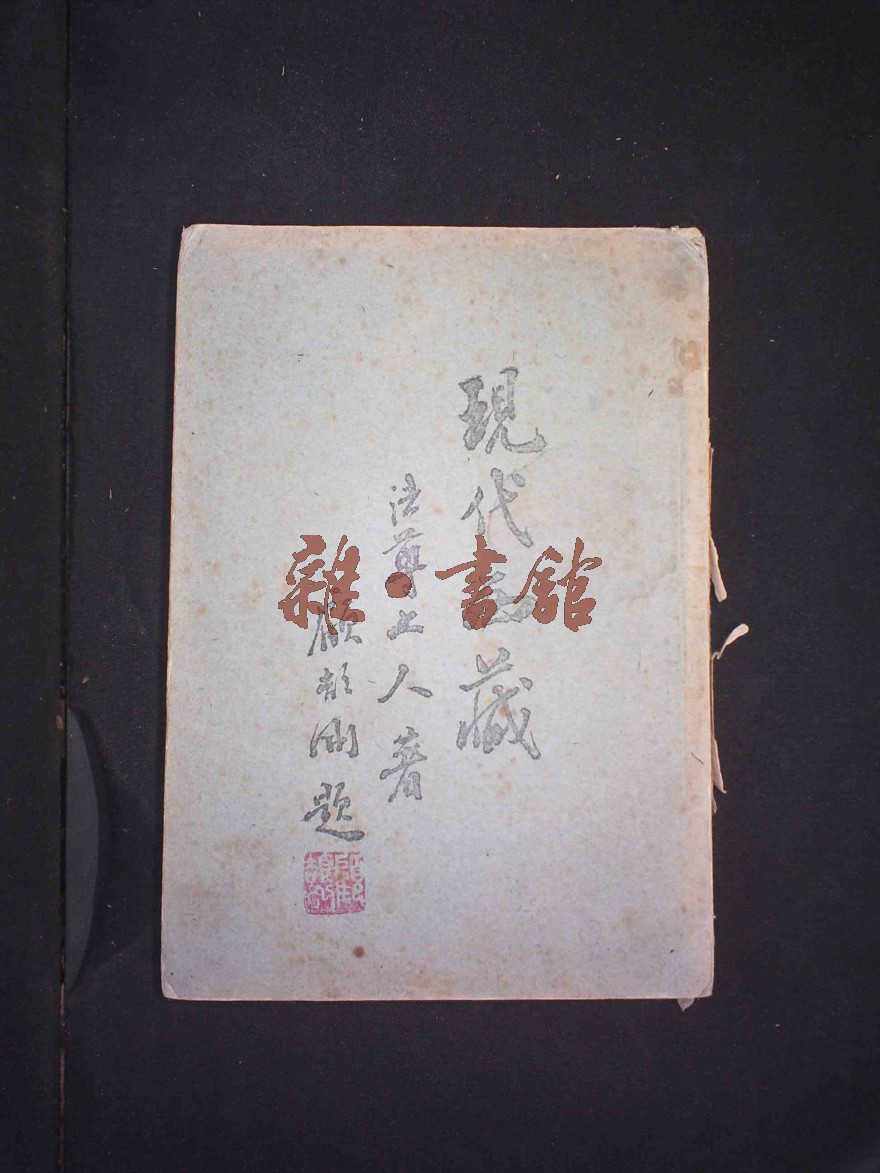 現代西藏
法尊上人著
顧頡剛題
雜·書館